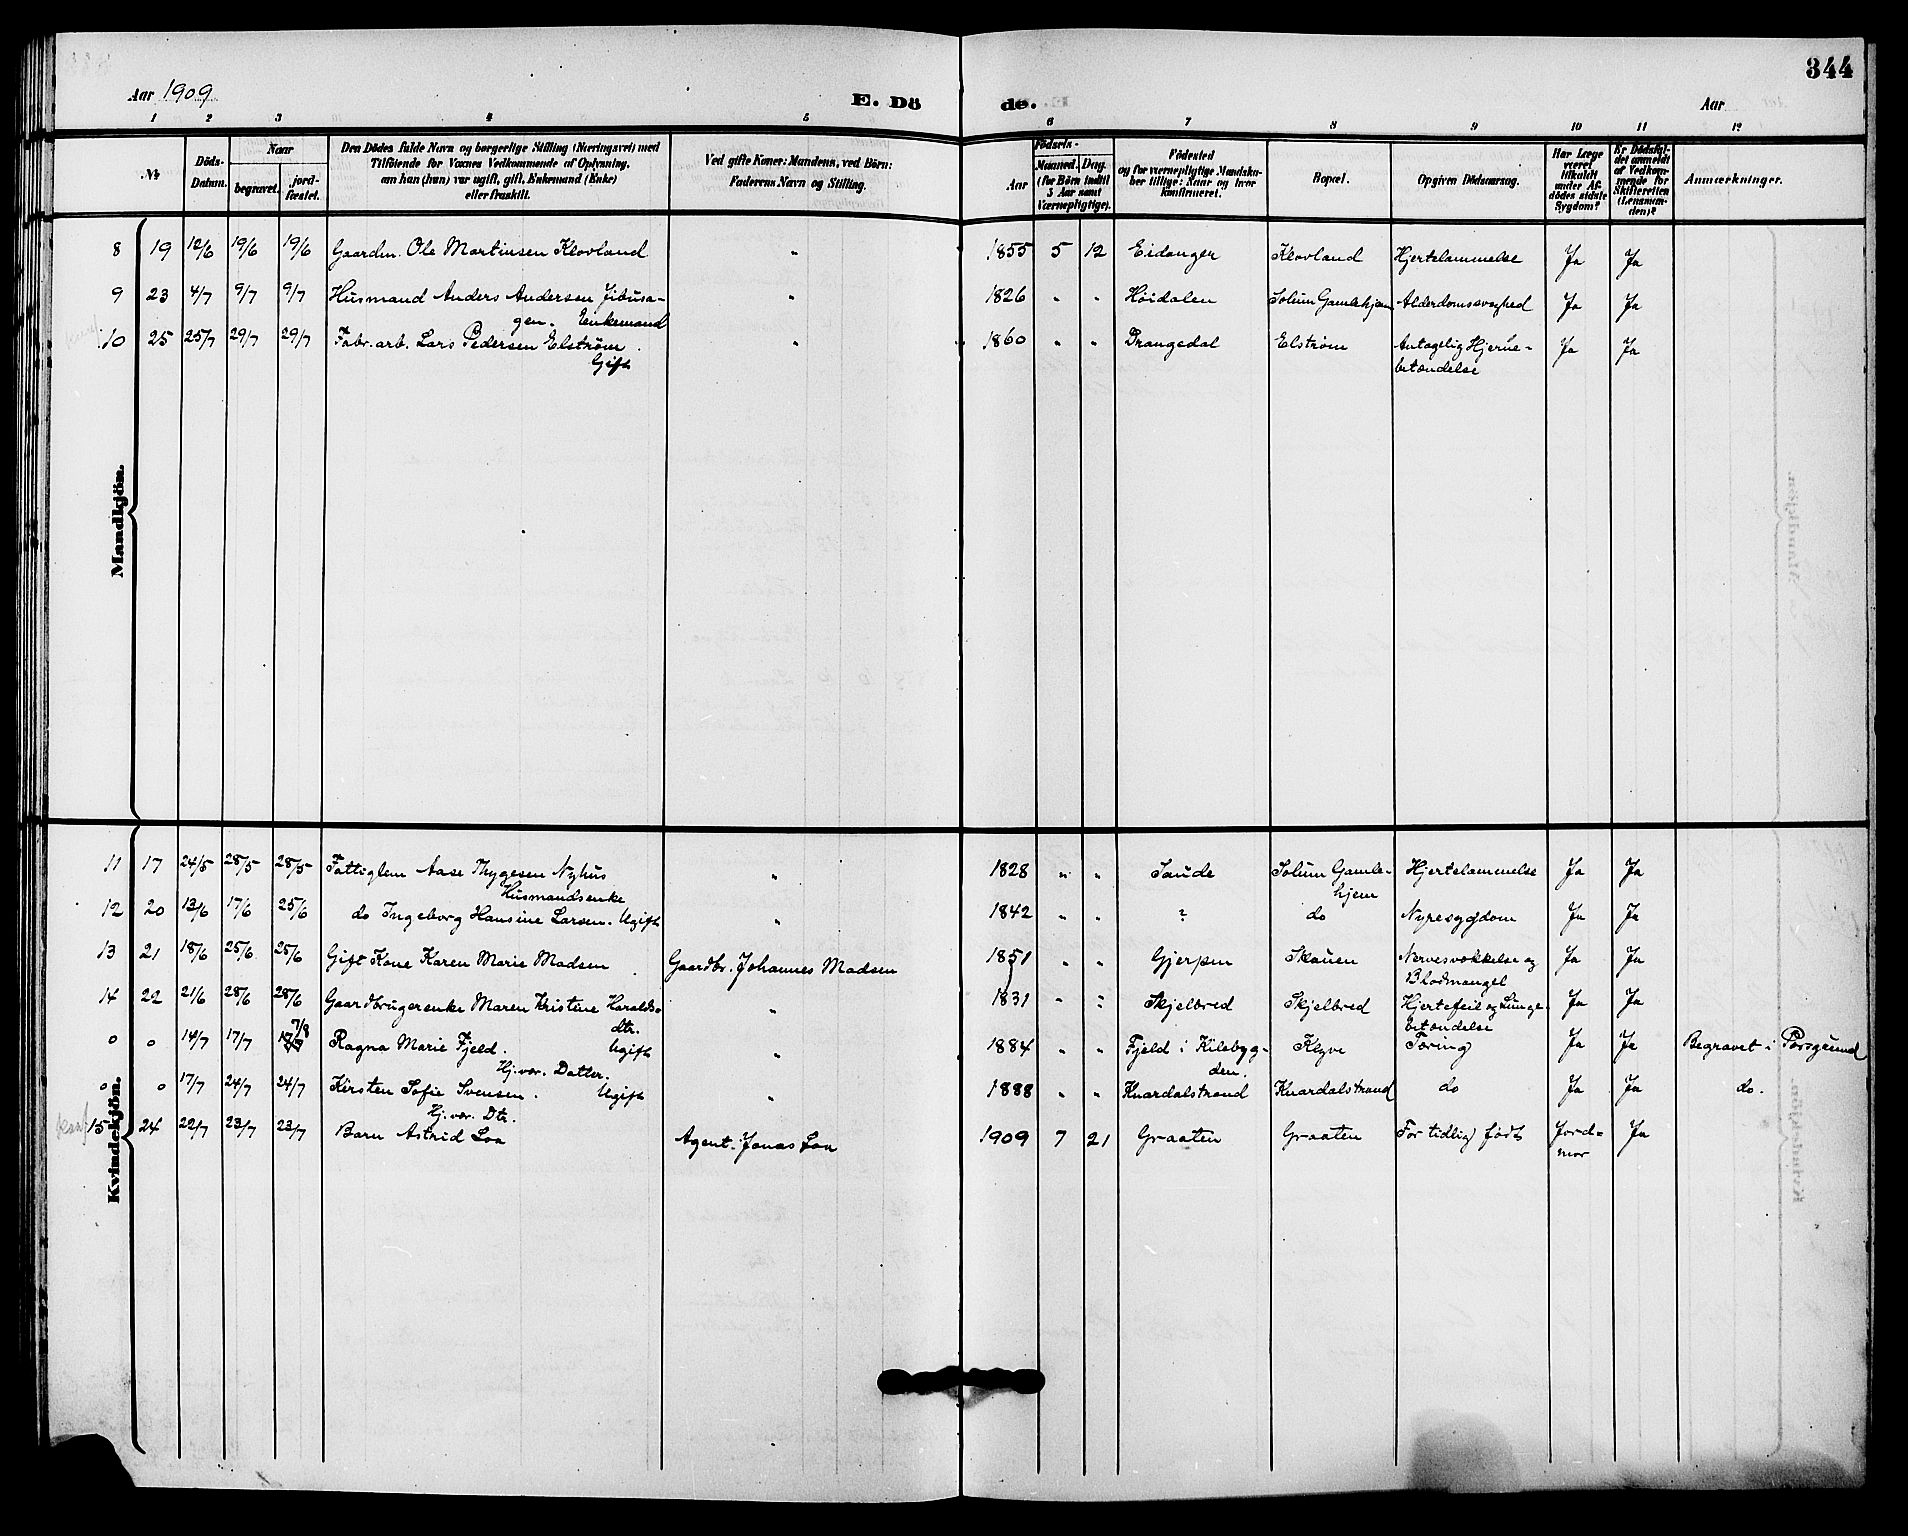 344
Aar 1909 E. Dö de. Aar
1 2 3 4 5 6 7 8 9 10 11 12
№ Döds-Datum. Naar begravet. jord-fæstet. Den Dödes fulde Navn og borgerlige Stilling (Næringsvei) med Tilföiende for Voxnes Vedkommende af Oplysning, om han (hun) var ugift, gift, Enkemand (Enke) eller fraskilt. Ved gifte Koner: Mandens, ved Börn: Faderens Navn og Stilling. Födsels- Aar Maaned. Dag. (for Börn indtil 5 Aar samt Værnepligtige). Födested og for værnepligtige Mandska-ber tillige: Naar og hvor konfirmeret. Bopæl. Opgiven Dödsaarsag. Har Læge været tilkaldt under Af-dödes sidste Sygdom? Er Dödsfal-det anmeldt af Vedkom-mende for Skifteretten (Lensman-den)? Anmærkninger.
Mandkjön.
8 19 12/6 19/6 19/6 Gaardm. Ole Martinsen Klovland " 1855 5 12 Eidanger Klovland Hjertelammelse Ja Ja
9 23 4/7 9/7 9/7 Husmand Anders Andersen Jibusa- " 1826 " " Höidalen Solum Gamlehjem Alderdomssvaghed Ja Ja
gen. Enkemand
10 25 25/7 29/7 29/7 Fabr. arb. Lars Pedersen Elström. " 1860 " " Drangedal Elström Antagelig Hjerne- Ja Ja
Gift betændelse
Kvindekjön.
11 17 24/5 28/5 28/5 Fattiglem Aase Thygesen Nyhus " 1828 " " Saude Solum Gamle- Hjertelammelse Ja Ja
Husmandsenke hjem
12 20 13/6 17/6 25/6 do Ingeborg Hansine Larsen. Ugift " 1842 " " ? do Nyresygdom Ja Ja
13 21 18/6 25/6 25/6 Gift Kone Karen Marie Madsen Gaardbr. Johannes Madsen 1851 " " Gjerpen Skauen Nervesvækkelse og Ja Ja
Blodmangel
14 22 21/6 28/6 28/6 Gaardbrugerenke Maren Kristine Haralds- " 1831 " " Skjelbred Skjelbred Hjertefeil og Lunge- Ja Ja
dtr. betændelse
0 0 14/7 17/7 7/8 Ragna Marie Fjeld. Ugift " 1884 " " Fjeld i Kilebyg- Klyve Tæring Ja Ja Begravet i Porsgrund
Hj. vær. Datter. den.
0 0 17/7 24/7 24/7 Kirsten Sofie Svensen. Ugift " 1888 " " Knardalstrand Knardalstrand do Ja Ja do.
Hj. vær. Dtr.
15 24 22/7 23/7 23/7 Barn Astrid Loa Agent. Jonas Loa 1909 7 21 Graaten Graaten For tidlig født Jord- Ja
mor